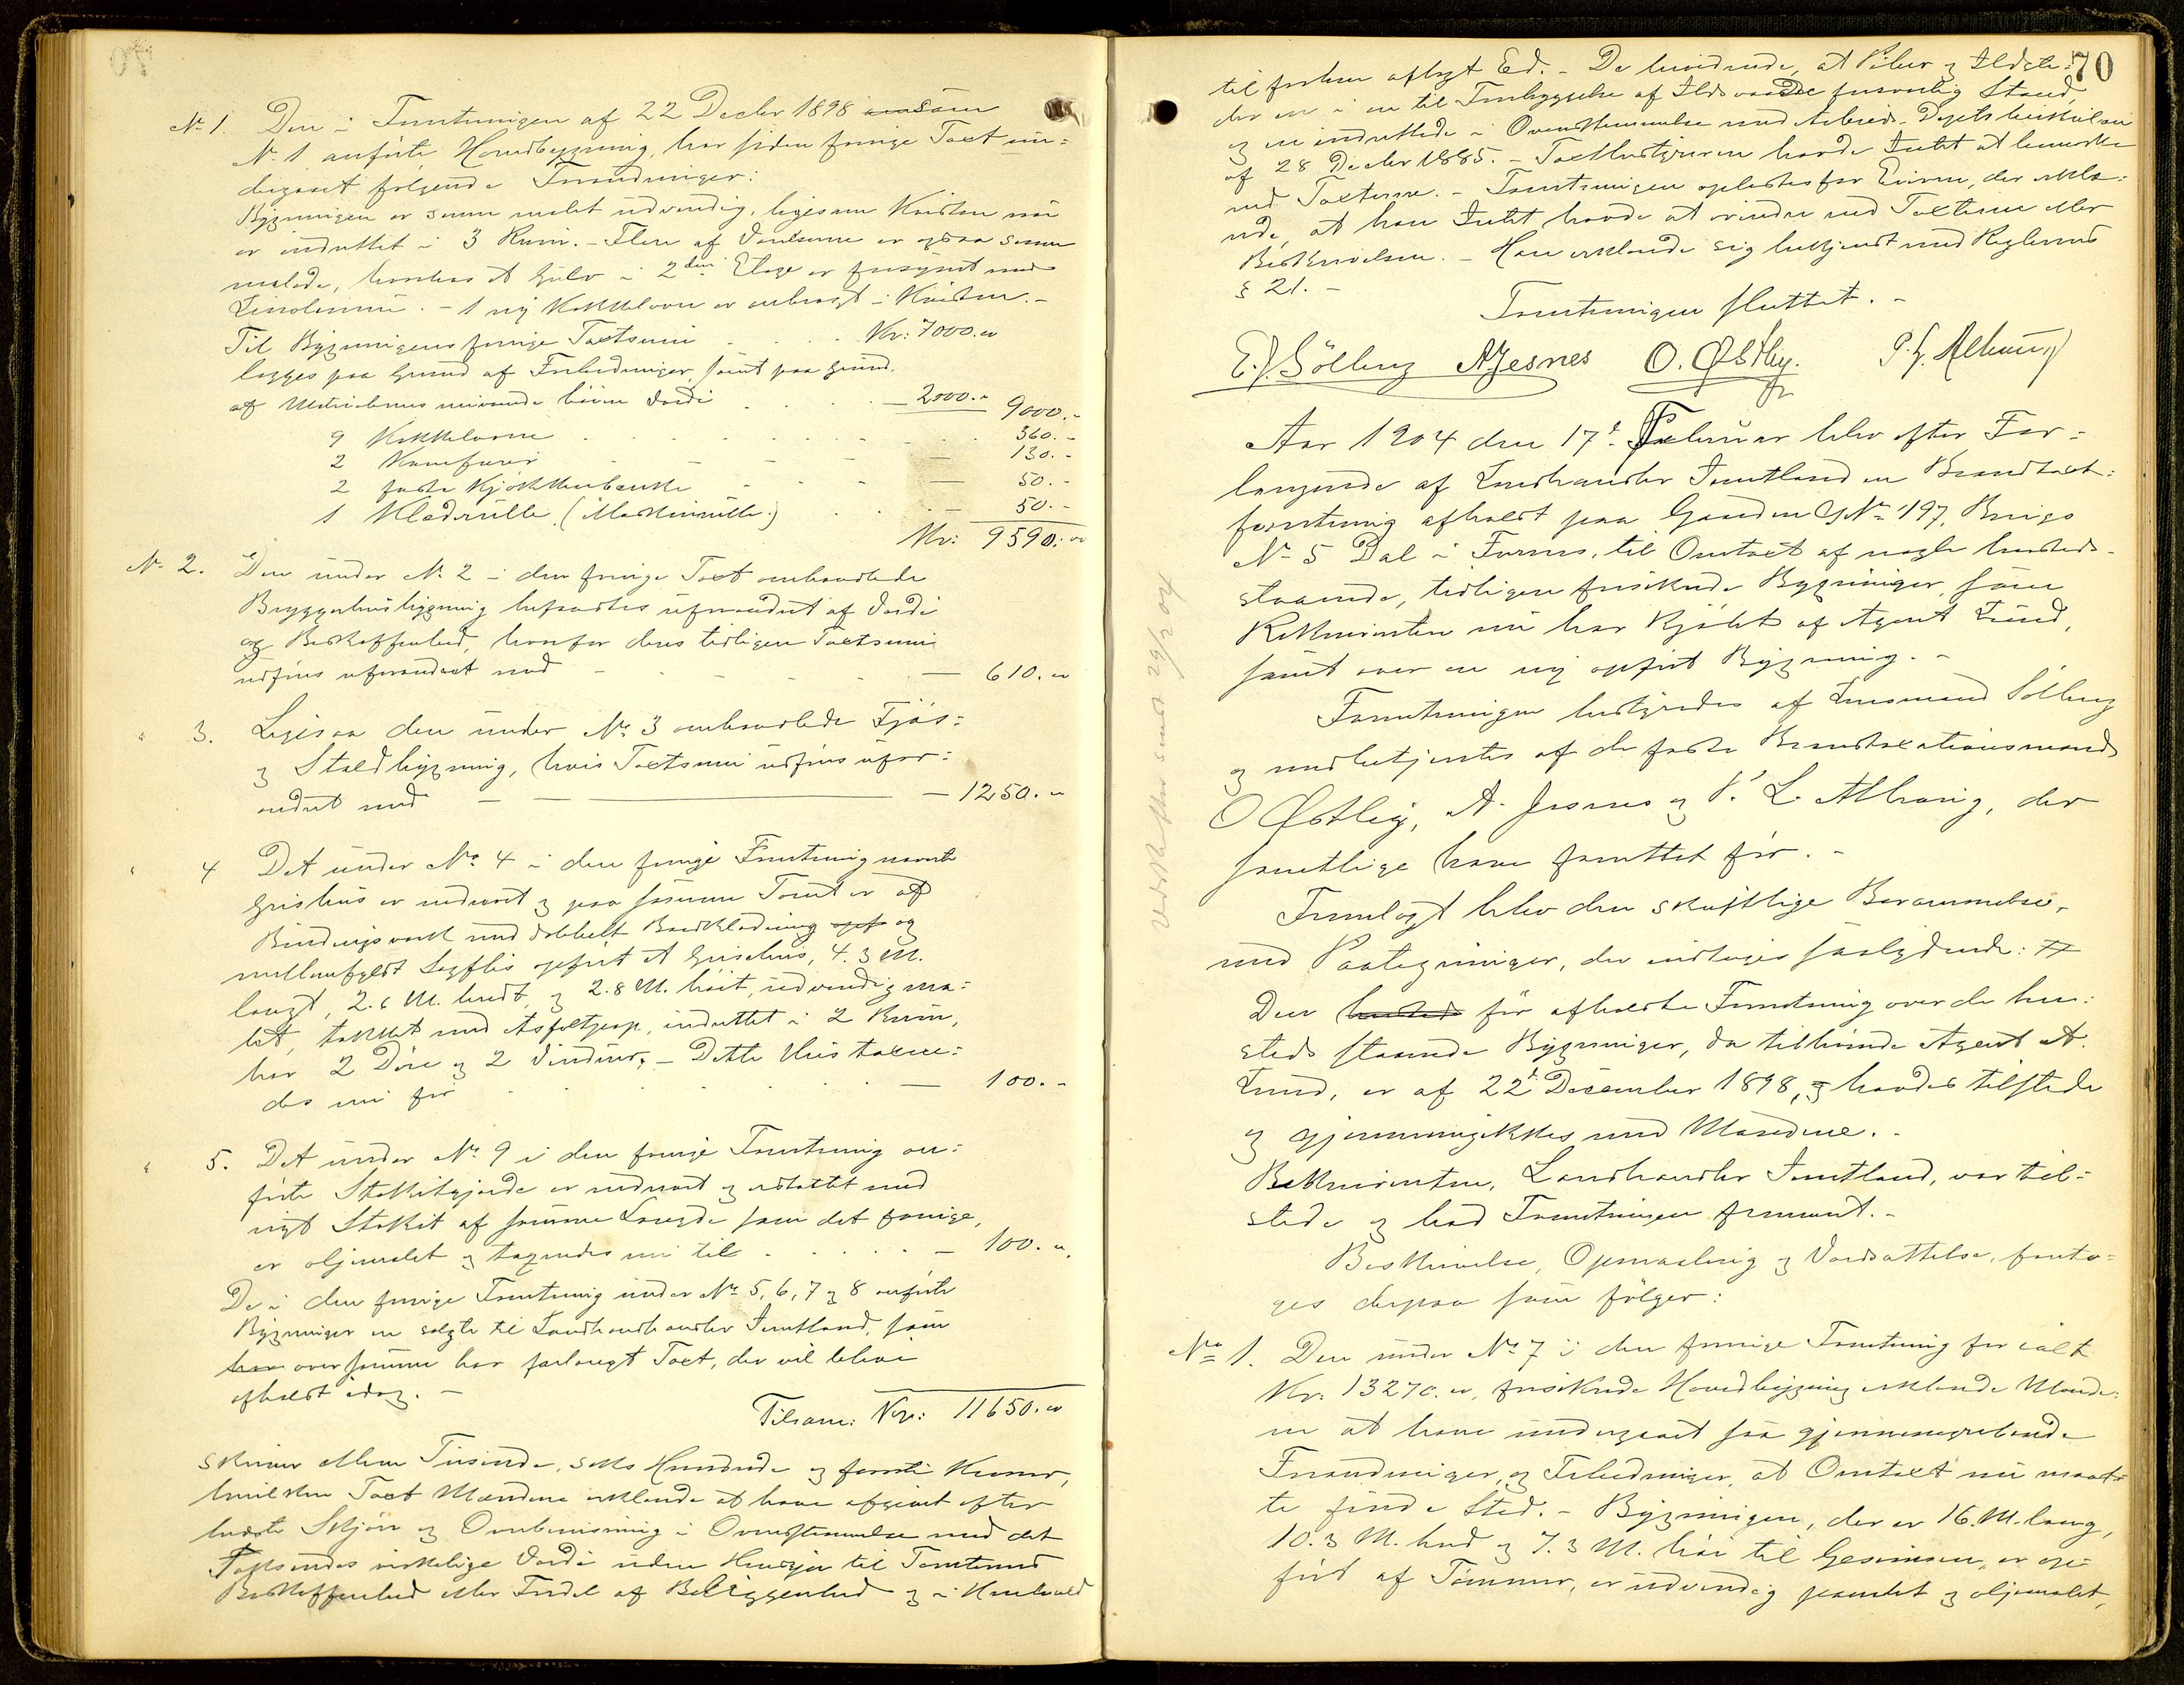 No 1. Den i Forretningen af 22 Decbr 1898 som
No 1 anførte Hovedbygning, har siden forrige Taxt un=
dergaaet følgende Forandringer:
Bygningen er svine malet udvendig, ligesom Kvisten nu
er indrettet i 3 Rum. - Flere af Værelserne er ogsaa
malede, hvorhos et Gulv i 2den Etage er forsynet med
Linoleum. - 1 ny Kakkelovn er anbragt i Kvisten. -
Til Bygningens forrige Taxtsum . . . Kr: 7000.
lægges paa Grund af Forbedringer, samt paa Grund
af Materialernes nuværende høiere Værdi . . . 2000. - 9000. -
9 Kakkelovne . . . 360. -
2 Komfurer . . . 130. -
2 faste Kjøkkenbænke . . . 50. -
1 Klædrulle (Maskinrulle) . . . 50. -
Kr: 9590.
No 2. Den under No 2 i den forrige Taxt omhandlede
Bryggerhusbygning befandtes uforandret af Værdi
og Beskaffenhed, hvorfor dens tidligere Taxtsum
udføres uforandret med - 610.
" 3. Ligesaa den under No 3 omhandlede Fjøs=
og Staldbygning, hvis Taxtsum udføres ufor=
andret med - 1250.
" 4 Det under No 4 i den forrige Forretning nævnte
Grishus er nedrevet og paa samme Tomt er af
Bindingsverk med dobbelt Bordklædning opf og
mellemfyldt Sagflis opført et Grisehus, 4.3 M.
langt, 2.6 M. bredt og 2.8 M. høit, udvendig ma=
let, tækket med Asfaltpap, indrettet i 2 Rum,
har 2 Døre og 2 Vinduer. - Dette Hus taxere=
des nu for . . . - 100. -
" 5. Det under No 9 i den forrige Forretning an=
førte Stakitgjærde er nedrevet og erstattet med
nyt Stakit af samme Længde som det forrige,
er oljemalet og taxeredes nu til . . . - 100.
De i den forrige Forretning under No 5, 6, 7 og 8 anførte
Bygninger er solgte til Landhandler Jemtland, som
har over samme har forlangt Taxt, der vil blive
afholdt idag. -
Tilsam: Kr: 11650.
skriver Elleve Tusinde, seks Hundrede og femti Kroner,
hvilken Taxt Mændene erklærede at have afgivet efter
bedste Skjøn og Overbevisning i Overensstemmelse med det
Taxeredes virkelige Værdi uden Hensyn til Tomtens
Beskaffenhed eller Fordel af Beliggenhed og i Henhold
70
til forhen aflagt Ed. - De bevidnede, at Piber og Ildste=
der er i en til Forebyggelse af Ildsvaade forsvarlig Stand,
og er indrettede i Overensstemmelse med Arbeids-Dept.s
af 28 Decbr 1885. - Taxtbestyreren havde Intet at bemærke
ved Taxterne. - Forretningen oplæstes for Eieren, der erklæ=
rede, at han Intet havde at erindre ved Taxterne eller
Beskrivelsen. - Han erklærede sig bekjendt med Reglernes
§ 21. -
Forretningen sluttet. -
E. J. Sölberg A Jesnes O. Østby.
Aar 1904 den 17d Februar blev efter For=
langende af Landhandler Jemtland en Brandtaxt=
forretning afholdt paa Gaarden GNo 197, Brugs
No 5 Dal i Furnes, til Omtaxt af nogle herstedes
staaende, tidligere forsikrede Bygninger, som
Rekvirenten nu har kjøbt af Agent Lund,
samt over en ny opført Bygning. -
Forretningen bestyredes af Lensmand Sölberg
og medbetjentes af de faste Brandtaxationsmænd
O Østby, A. Jesnes og P. L. Alhaug, der
samtlige have forrettet før. -
Fremlagt blev den skriftlige Berammelse,
med Paategninger, der indtages saalydende: #
Den hersteds før afholdte Forretning over de her=
steds staaende Bygninger, da tilhørende Agent A.
Lund, er af 22d December 1898, og havdes tilstede
og gjennemgikkes med Mændene. -
Rekvirenten, Landhandler Jemtland, var til=
stede og bad Forretningen fremmet. -
Beskrivelse, Opmaaling og Værdsættelse, foreto=
ges derpaa som følger:
No 1. Den under No 7 i den forrige Forretning for ialt
Kr. 13270. forsikrede Hovedbygning erklærede Mænde=
ne at have undergaaet saa gjennemgribende
Forandringer og Forbedringer, at Omtaxt nu maat=
te finde Sted. - Bygningen, der er 16. M. lang,
10.3 M. bred og 7.3 M. høi til Gesimsen, er op=
ført af Tømmer, er udvendig panelet og oljemalet,